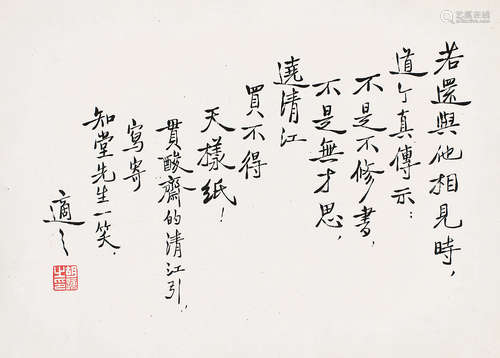 若還與他相見時，
道个真傳示：
不是不修書，
不是無才思，
遶清江
買不得
天樣紙！
貫酸齋的清江引，
寫寄
知堂先生一笑．
適之